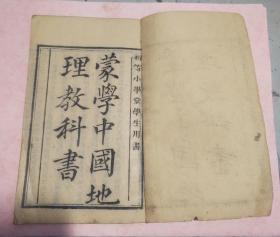 初等小學堂學生用書
蒙學中國地
理教科書